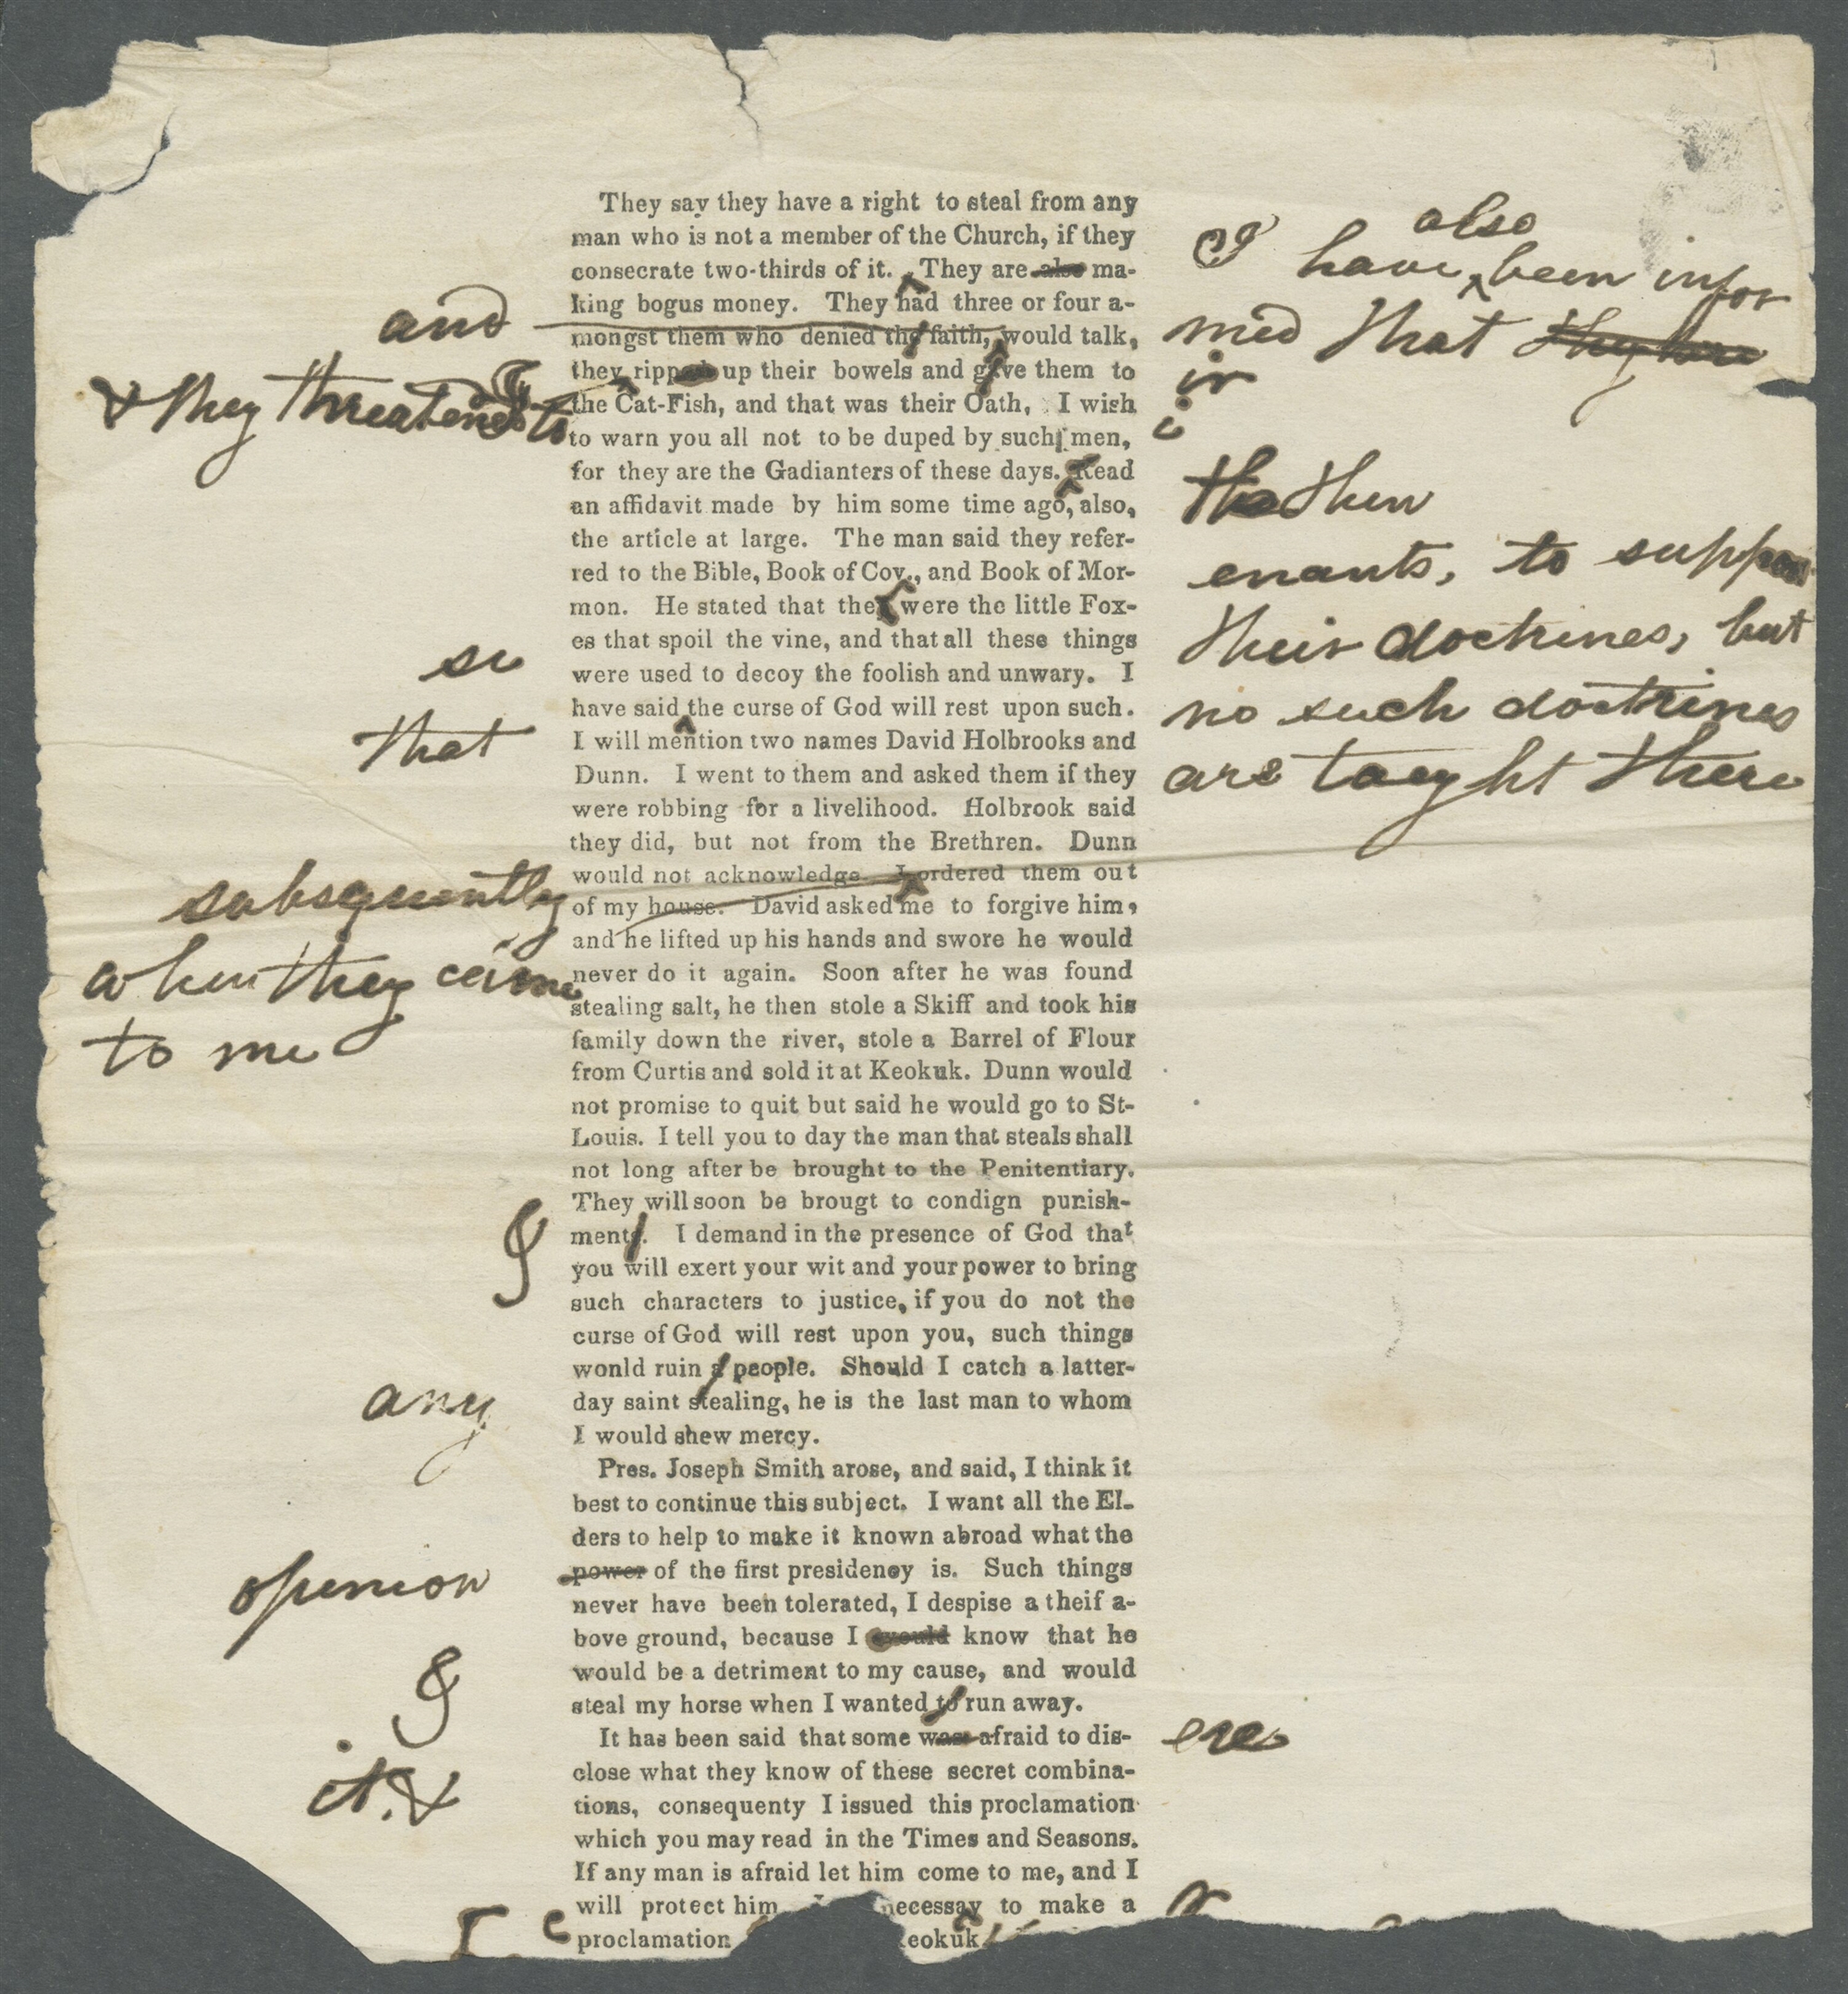 They say they have a right to steal from any
man who is not a member of the Church, if they
consecrate two-thirds of it. They are also ma-
king bogus money. They had three or four a-
mongst them who denied the faith, would talk,
they ripped up their bowels and gave them to
the Cat-Fish, and that was their Oath, I wish
to warn you all not to be duped by such men,
for they are the Gadianters of these days. Read
an affidavit made by him some time ago, also,
the article at large. The man said they refer-
red to the Bible, Book of Cov., and Book of Mor-
mon. He stated that they were the little Fox-
es that spoil the vine, and that all these things
were used to decoy the foolish and unwary. I
have said the curse of God will rest upon such.
I will mention two names David Holbrooks and
Dunn. I went to them and asked them if they
were robbing for a livelihood. Holbrook said
they did, but not from the Brethren. Dunn
would not acknowledge I ordered them out
of my house. David asked me to forgive him,
and he lifted up his hands and swore he would
never do it again. Soon after he was found
stealing salt, he then stole a Skiff and took his
family down the river, stole a Barrel of Flour
from Curtis and sold it at Keokuk. Dunn would
not promise to quit but said he would go to St-
Louis. I tell you to day the man that steals shall
not long after be brought to the Penitentiary.
They will soon be brougt to condign punish-
ments. I demand in the presence of God that
you will exert your wit and your power to bring
such characters to justice, if you do not the
curse of God will rest upon you, such things
wonld ruin a people. Should I catch a latter-
day saint stealing, he is the last man to whom
I would shew mercy.
Pres. Joseph Smith arose, and said, I think it
best to continue this subject. I want all the El-
ders to help to make it known abroad what the
power of the first presidency is. Such things
never have been tolerated, I despise a theif a-
bove ground, because I would know that he
would be a detriment to my cause, and would
steal my horse when I wanted to run away.
It has been said that some was afraid to dis-
close what they know of these secret combina-
tions, consequenty I issued this proclamation
which you may read in the Times and Seasons.
If any man is afraid let him come to me, and I
will protect him necessay to make a
proclamation eokuk
and
& they threatened to
se
that
subsequently
when they came
to me
any
opinion
it. &
also
I have been infor
med that they have
then
enants, to suppor
their doctrines, but
no such doctrines
are taught there
ere